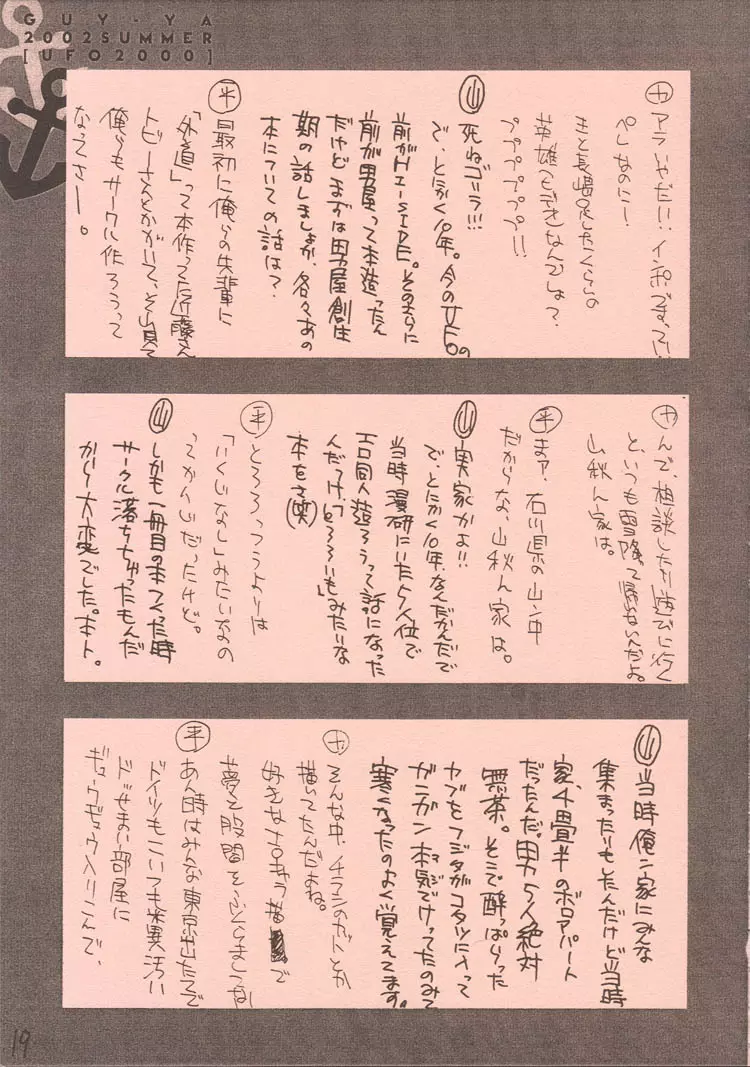 GUY-YA
2002SUMMER
[UFO2000]
アラいやだ!!、インポですってい
ペしゃめにー!
きっと長嶋
英雄ってどきなんでしょ?
プププププププ!!
山 死ねゴラ!!!
で、とにかく10年。今のUFOの
前がHI-SIDE。そのまた
前が男屋って本造ったん
だけどまずは男屋創生
期の話しましょか、各々あの
本についての話は?
平 最初に俺らの先輩に
「外道」って本作ってた近藤さん
トビーさんとかがいて、そん見て
俺らもサークル作ろうって
なってさー。
んで、相談したり遊びに行く
と、いつも雪降って帰れないんだよ
山秋ん家は。
平 まァ、石川県の山ン中
だからな、山秋ん家は。
山 実家かよ!!
で、とにかく10年、なんだかんだで
当時漫研にいた5人位で
エロ同人造ろうって話になった
んだっけ、「とろろいも」みたいな
本をさ(笑)
平 とろろっつうよりは
「いくじなし」みたいなの
ってかんじだったけど。
山 しかも一冊目の本つくった時
サークル落ちちゃったもんだ
から大変でした。ホント。
山 当時俺ン家にみんな
集まったりもしたんだけど当時
家、4畳半のボロアパート
だったんだ。男5人絶対
無茶。そこで酔っぱらった
ヤブをフジタがコタツに入って
ガンガン本気でけってたのみて
マジ
寒くなったのよく覚えてます。
そんな中、チラシのガとか
描いてたんだよね。
好きな
夢と股間をふくらましてな
平 あん時はみんな東京出たてで
ドイツもこいつも米異汚い
ドせまい部屋に
ギュウギュウ入りこんで、
19